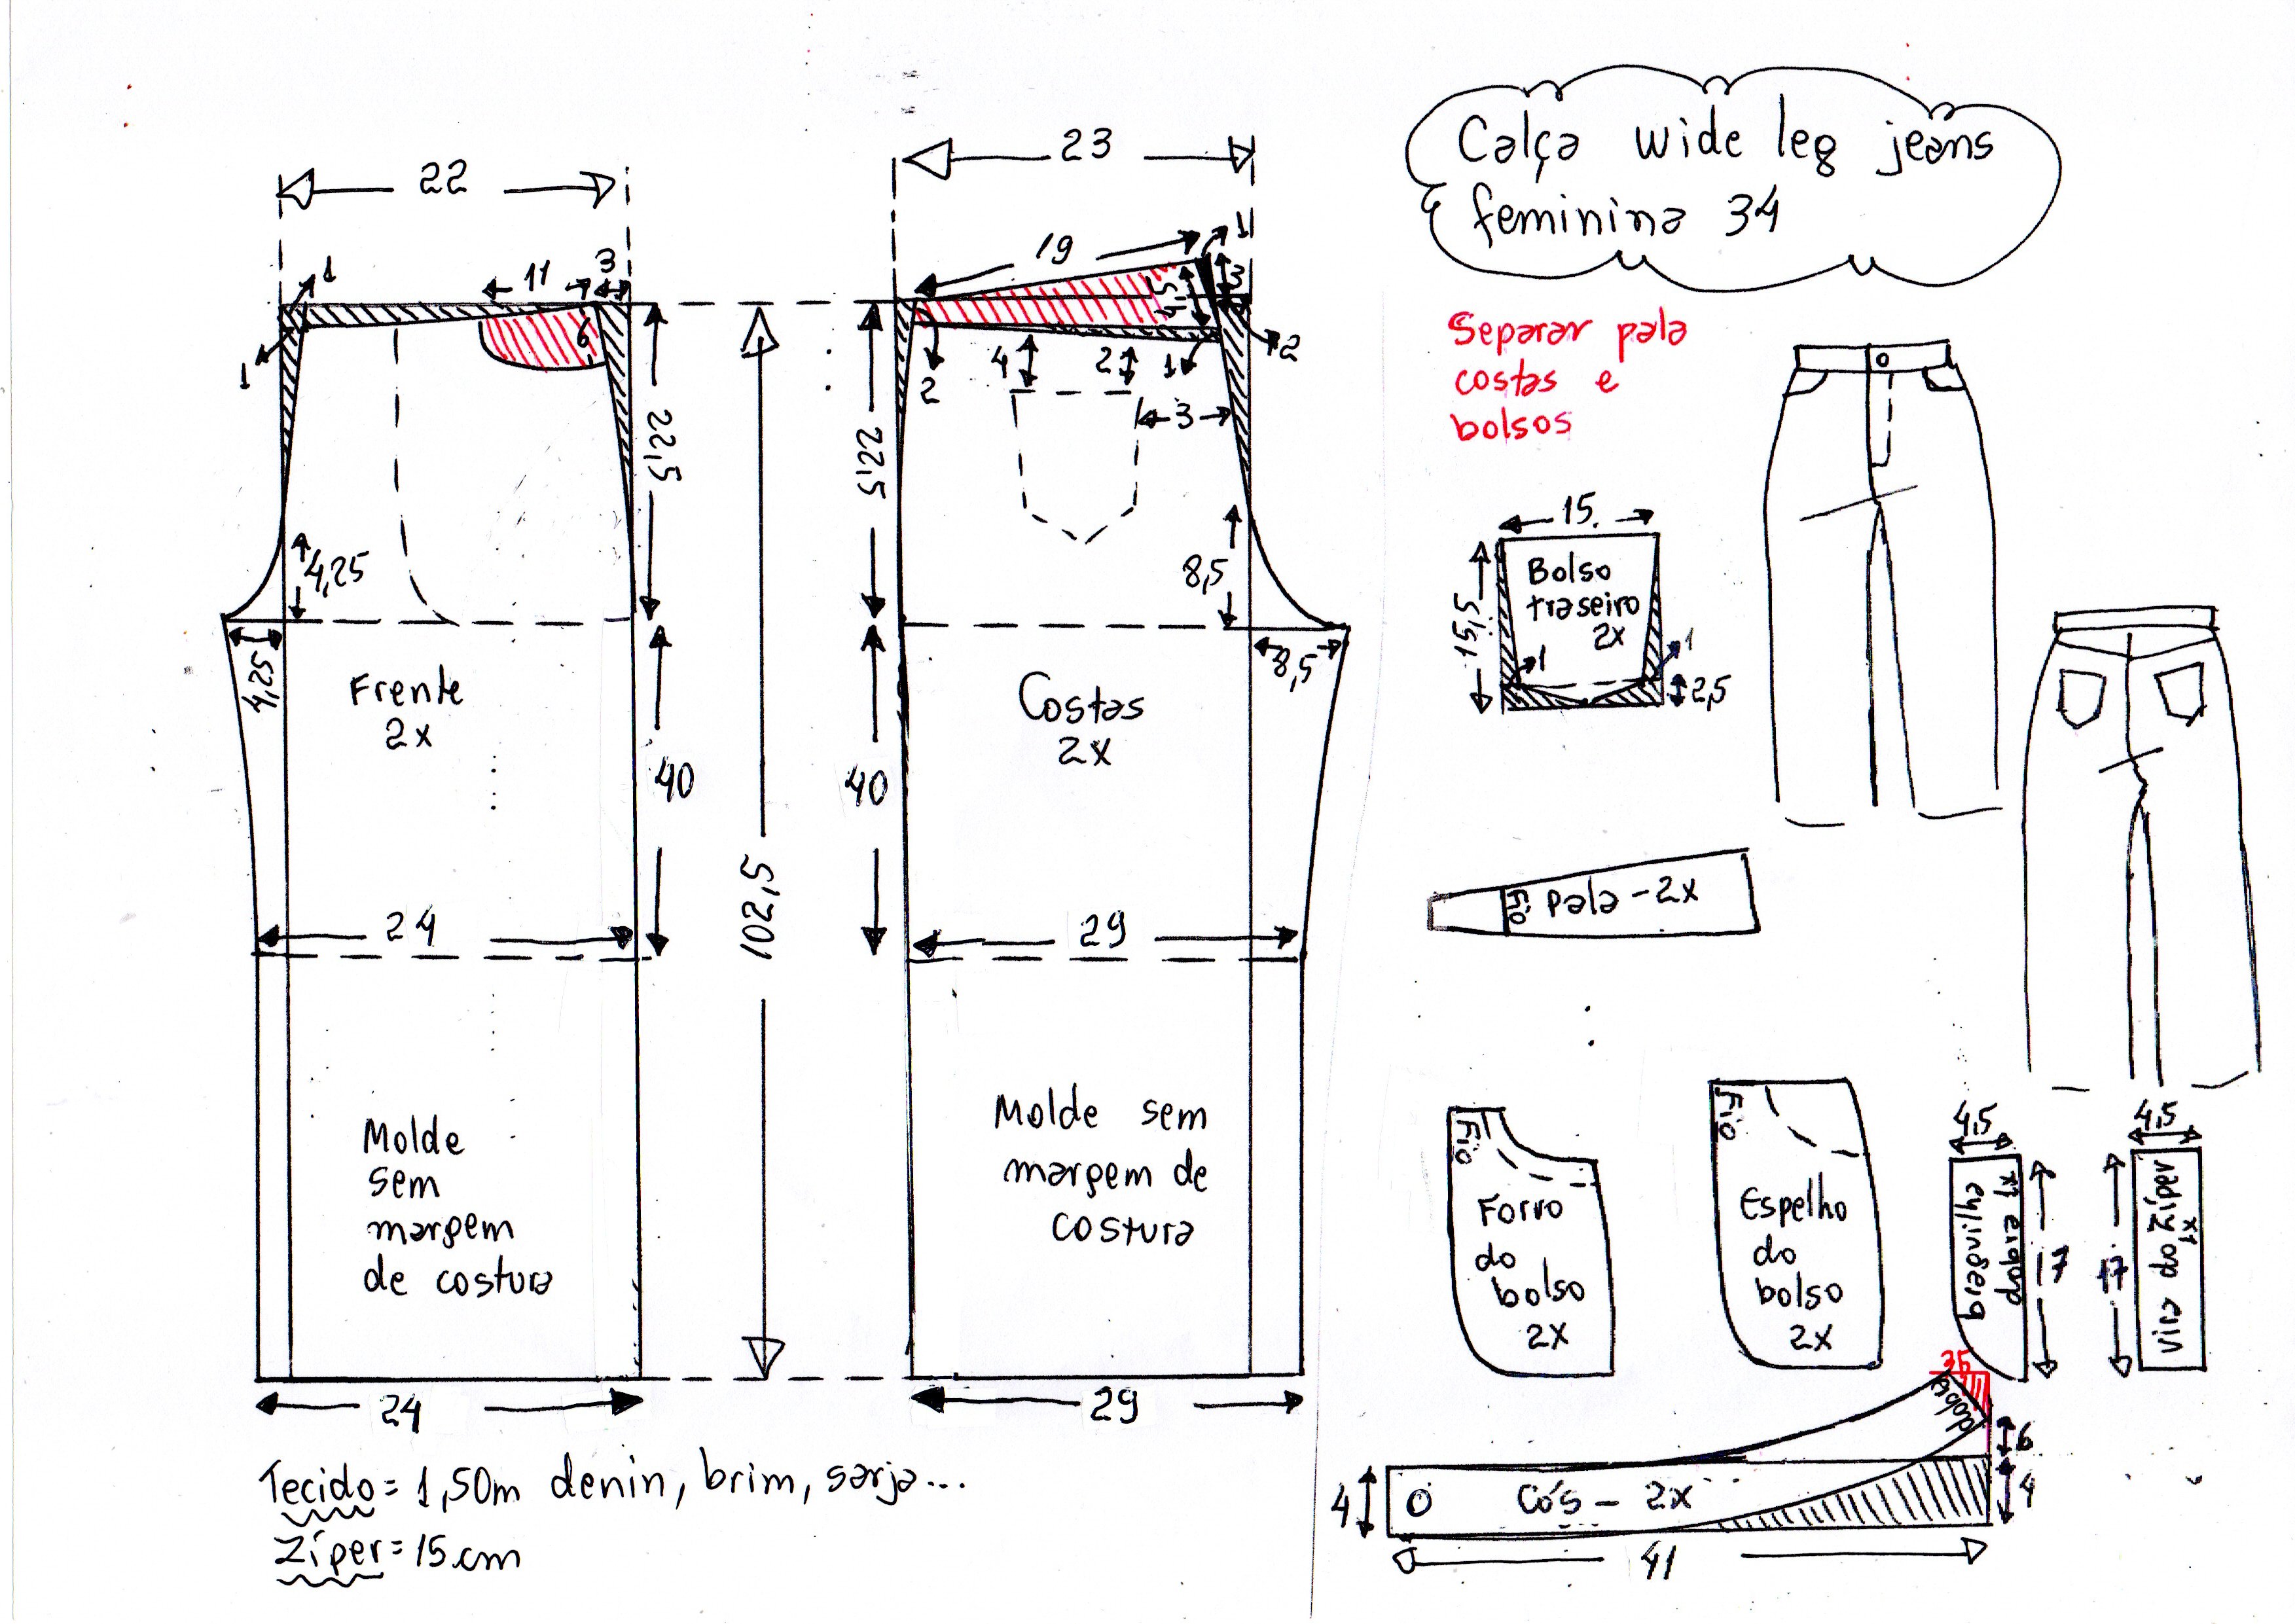 Calça wide leg jeans
feminina 34
Separar pala
costas e
bolsos
22
1
11
3
1
6
22,5
4,25
4,25
Frente
2x
40
24
Molde
sem
margem
de costura
24
102,5
23
19
1
3
4,5
2
2
4
2
1
3
22,5
8,5
8,5
Costas
2x
40
29
Molde sem
margem de
costura
29
15
15,5
Bolso
traseiro
2x
1
1
2,5
Fio
pala - 2x
Fio
Forro
do
bolso
2x
Fio
Espelho
do
bolso
2x
4,5
17
braguilha
dobra 1x
4,5
17
vira do zíper
1x
35
dobra
6
4
4
Cós - 2x
41
Tecido = 1,50m denin, brim, sarja...
Zíper = 15 cm